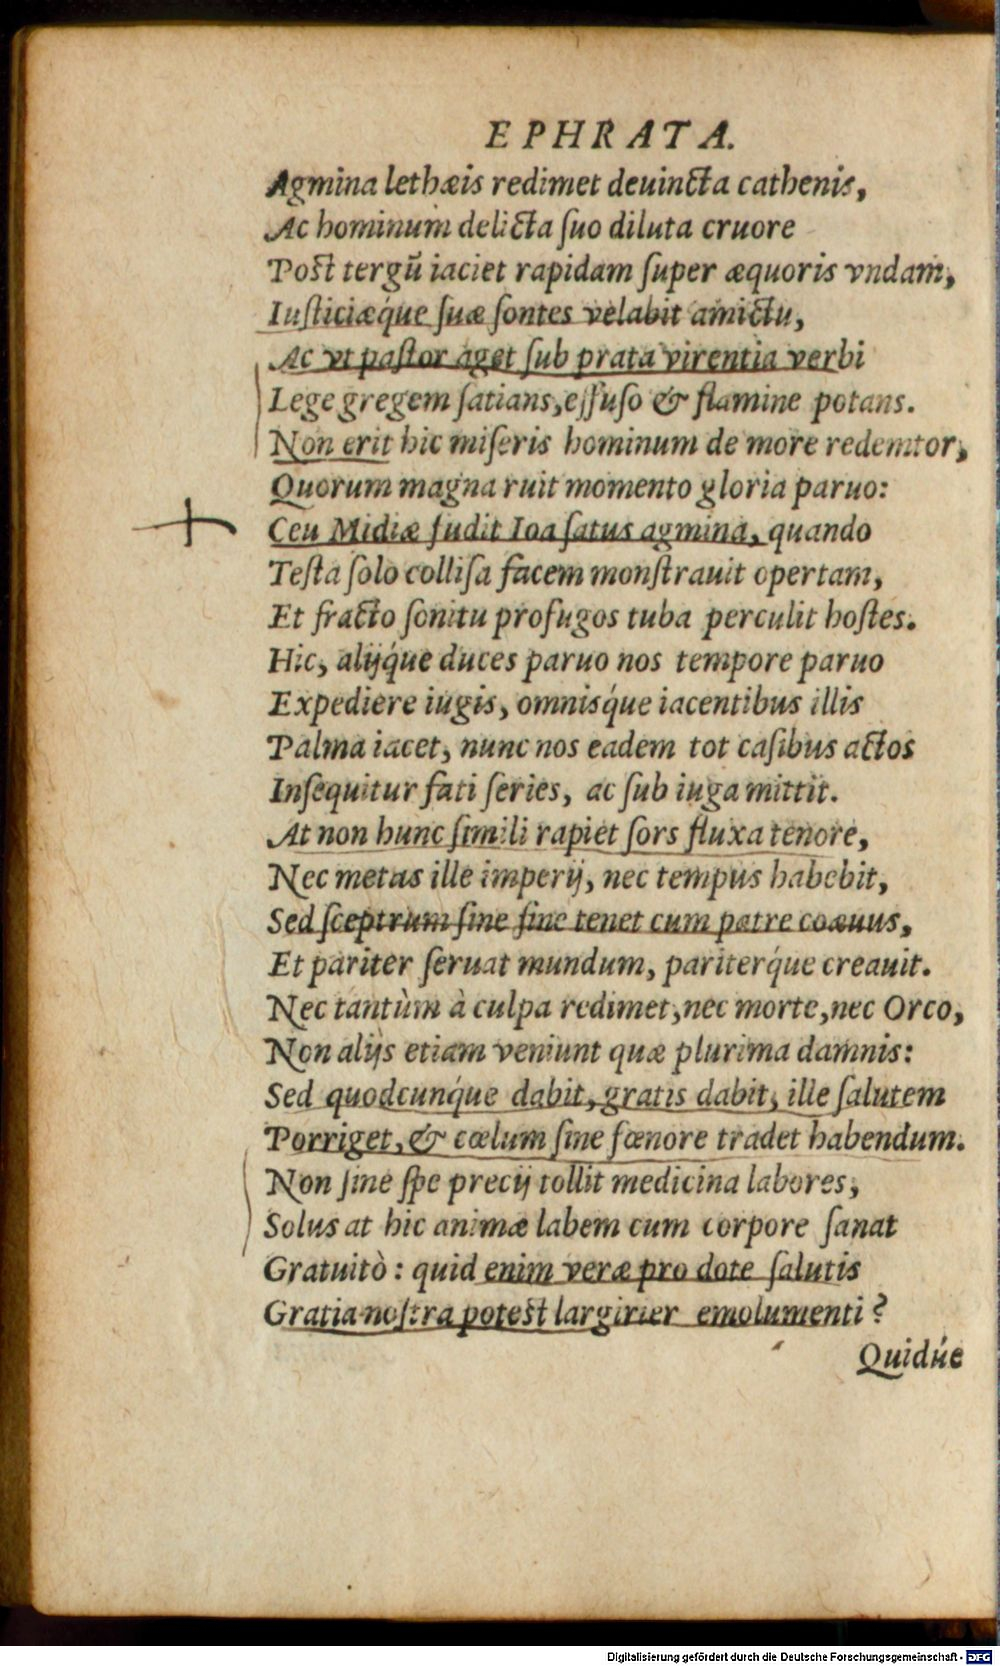 EPHRATA.
Agmina lethæis redimet deuincta cathenis,
Ac hominum delicta ſuo diluta cruore
Poſt tergū iaciet rapidam ſuper æquoris vndam,
Iuſticiæq́ue ſuæ ſontes velabit amictu,
Ac vt paſtor aget ſub prata virentia verbi
Lege gregem ſatians, effuſo & flamine potans.
Non erit hic miſeris hominum de more redemtor,
Quorum magna ruit momento gloria paruo:
Ceu Midiæ fudit Ioa ſatus agmina, quando
Teſta ſolo colliſa facem monſtrauit opertam,
Et fracto ſonitu profugos tuba perculit hoſtes.
Hic, alijq́ue duces paruo nos tempore paruo
Expediere iugis, omnisq́ue iacentibus illis
Palma iacet, nunc nos eadem tot caſibus actos
Inſequitur fati ſeries, ac ſub iuga mittit.
At non hunc ſimili rapiet ſors fluxa tenore,
Nec metas ille imperij, nec tempus habebit,
Sed ſceptrum ſine fine tenet cum patre coæuus,
Et pariter ſeruat mundum, pariterq́ue creauit.
Nec tantùm à culpa redimet, nec morte, nec Orco,
Non alijs etiam veniunt quæ plurima damnis:
Sed quodcunq́ue dabit, gratis dabit, ille ſalutem
Porriget, & cœlum ſine fœnore tradet habendum.
Non ſine ſpe precij tollit medicina labores,
Solus at hic animæ labem cum corpore ſanat
Gratuitò: quid enim veræ pro dote ſalutis
Gratia noſtra poteſt largirier emolumenti?
Quidúe
Digitalisierung gefördert durch die Deutsche Forschungsgemeinschaft - DFG